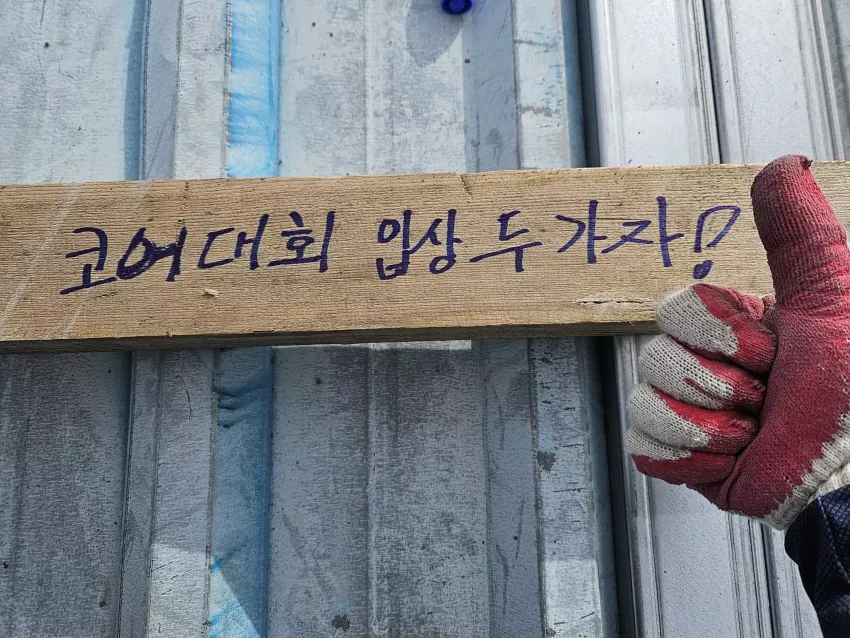 코어대회 입상 두 가자!